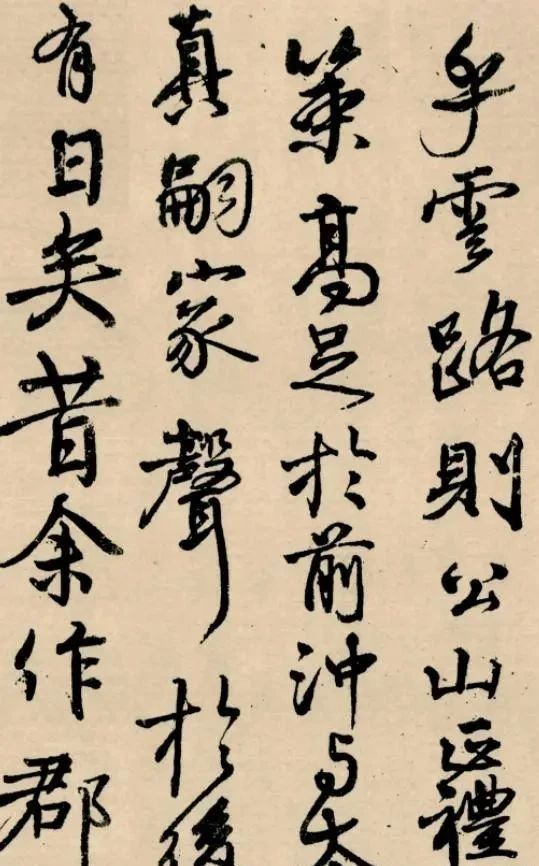 乎雲路則公山正禮
策高足於前沖与太
真嗣家聲於後
有日矣昔余作郡